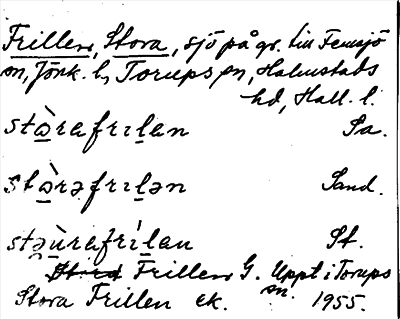 Frillen, Stora, sjö på gr. till Femsjö
sn, Jönk. l., Torups sn, Halmstads
hd, Hall. l.
stɑ̀rafrɪlan Sa.
stɑ̀rəfrɪlən Sand.
stəùrafrílan St.
Stora Frillen G. Uppt i Torups
sn.
Stora Frillen ek. 1955.